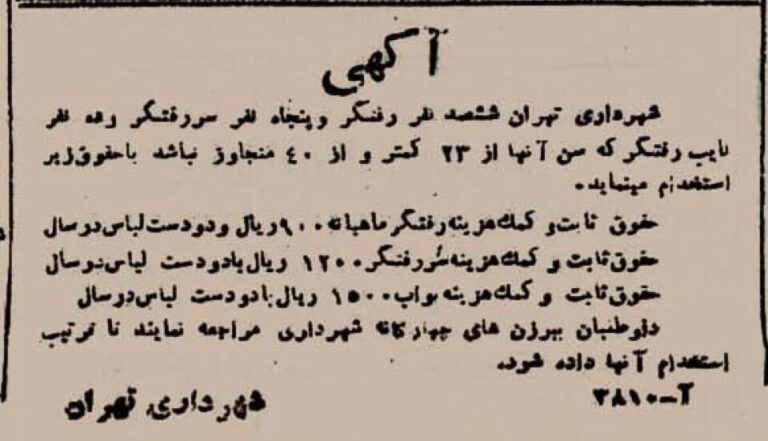 آگهی
شهرداری تهران ششصد نفر رفتگر و پنجاه نفر سررفتگر و ده نفر
نایب رفتگر که سن آنها از ۲۳ کمتر و از ۴۰ متجاوز نباشد با حقوق زیر
استخدام مینماید.
حقوق ثابت و کمک هزینه رفتگر ماهیانه ۹۰۰ ریال و دو دست لباس در سال
حقوق ثابت و کمک هزینه سررفتگر ۱۲۰۰ ریال با دو دست لباس در سال
حقوق ثابت و کمک هزینه نواب ۱۵۰۰ ریال با دو دست لباس در سال
داوطلبان ببرزن های چهارگانه شهرداری مراجعه نمایند تا ترتیب
استخدام آنها داده شود.
آ-۳۸۱۰
شهرداری تهران